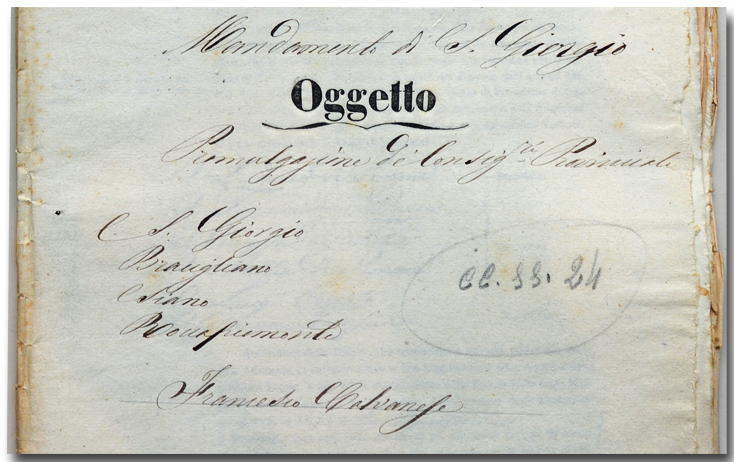 Mandamento di S. Giorgio
Oggetto
Promulgazione de' Consig.ri Provinciale
S. Giorgio
Bracigliano
Siano
Roccapiemonte
cc. ss. 24
Francesco Calvanese